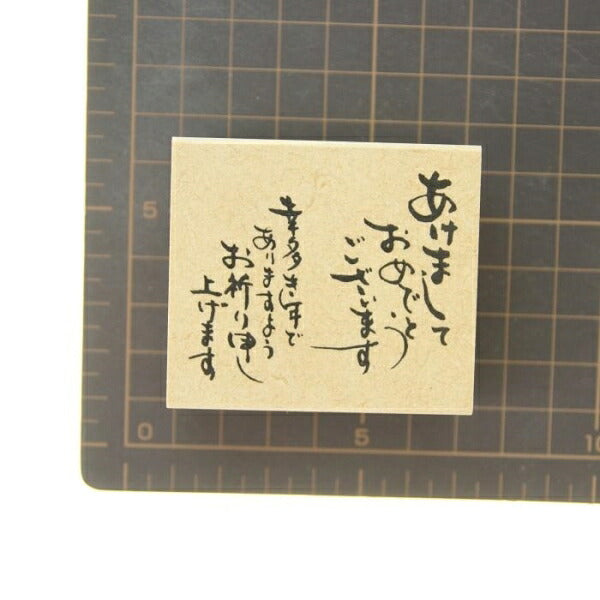 あけまして
おめでとう
ございます
幸多き年で
ありますよう
お祈り申し
上げます
5
0
5
10